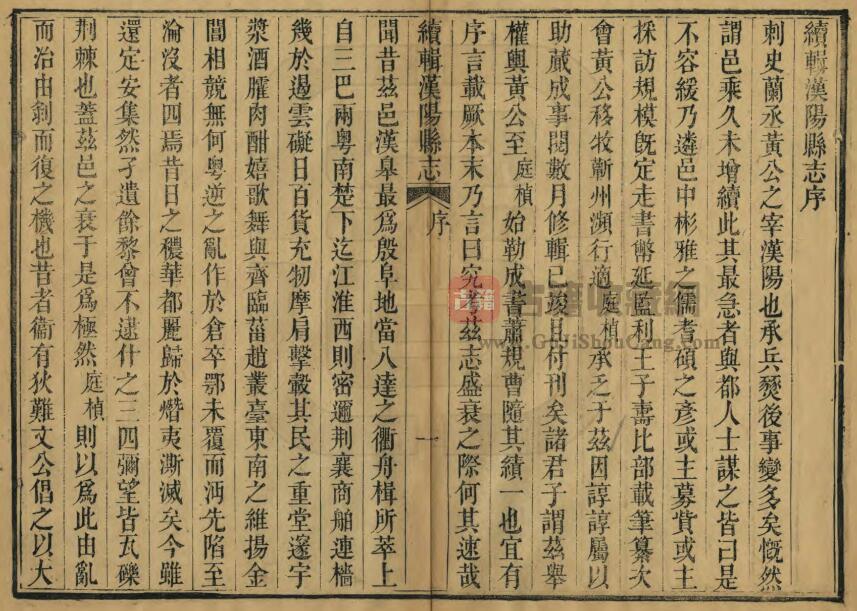 續輯漢陽縣志序
刺史蘭丞黃公之宰漢陽也承兵燹後事變多矣慨然
謂邑乘久未增續此其最急者與都人士謀之皆曰是
不容緩乃遴邑中彬雅之儒耆碩之彥或主募貲或主
採訪規模旣定走書幣延監利王子壽比部載筆纂次
會黃公移牧蘄州瀕行適庭楨承乏于茲因諄諄屬以
助蕆成事閱數月修輯已竣且付刊矣諸君子謂茲舉
權輿黃公至庭楨始勒成書蕭規曹隨其績一也宜有
序言載厥本末乃言曰究考茲志盛衰之際何其速哉
續輯漢陽縣志 序 一
聞昔茲邑漢皋最爲殷阜地當八達之衢舟楫所萃上
自三巴兩粵南楚下迄江淮西則密邇荆襄商舶連檣
幾於遏雲礙日百貨充牣摩肩擊轂其民之重堂邃宇
漿酒臛肉酣嬉歌舞與齊臨菑趙叢臺東南之維揚金
閶相競無何粵逆之亂作於倉卒鄂未覆而沔先陷至
淪沒者四焉昔日之穠華都麗歸於熸夷澌滅矣今雖
還定安集然孑遺餘黎會不逮什之三四彌望皆瓦礫
荆棘也蓋茲邑之衰于是爲極然庭楨則以爲此由亂
而治由剝而復之機也昔者衞有狄難文公倡之以大
古籍
古籍收藏網
www.GuJiShouCang.com